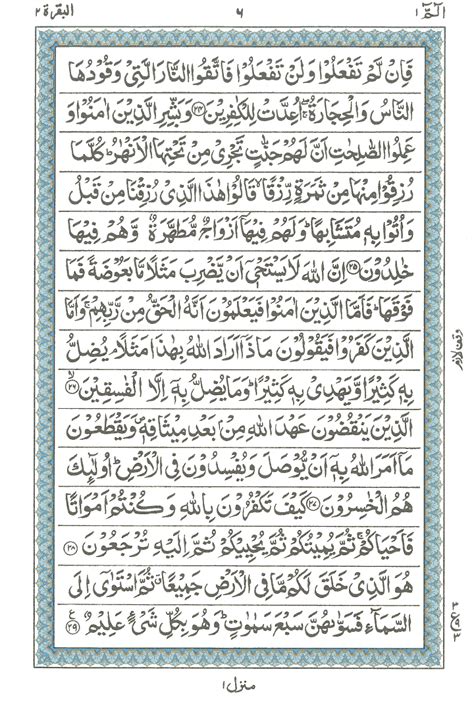 البقرة ٢
٦
الٓمّٓ ١
فَاِنْ لَّمْ تَفْعَلُوْا وَلَنْ تَفْعَلُوْا فَاتَّقُوا النَّارَ الَّتِیْ وَقُوْدُهَا
النَّاسُ وَالْحِجَارَةُ ۖۚ اُعِدَّتْ لِلْكٰفِرِیْنَ ﴿٢٤﴾ وَبَشِّرِ الَّذِیْنَ اٰمَنُوْا وَ
عَمِلُوا الصّٰلِحٰتِ اَنَّ لَهُمْ جَنّٰتٍ تَجْرِیْ مِنْ تَحْتِهَا الْاَنْهٰرُ ؕ كُلَّمَا
رُزِقُوْا مِنْهَا مِنْ ثَمَرَةٍ رِّزْقًا ۙ قَالُوْا هٰذَا الَّذِیْ رُزِقْنَا مِنْ قَبْلُ
وَاُتُوْا بِهٖ مُتَشَابِهًا ؕ وَلَهُمْ فِیْهَاۤ اَزْوَاجٌ مُّطَهَّرَةٌ ۙ وَّهُمْ فِیْهَا
خٰلِدُوْنَ ﴿٢٥﴾ اِنَّ اللّٰهَ لَا یَسْتَحْیٖۤ اَنْ یَّضْرِبَ مَثَلًا مَّا بَعُوْضَةً فَمَا
فَوْقَهَا ؕ فَاَمَّا الَّذِیْنَ اٰمَنُوْا فَیَعْلَمُوْنَ اَنَّهُ الْحَقُّ مِنْ رَّبِّهِمْ ۚ وَاَمَّا
الَّذِیْنَ كَفَرُوْا فَیَقُوْلُوْنَ مَاذَاۤ اَرَادَ اللّٰهُ بِهٰذَا مَثَلًا ۘ یُضِلُّ
بِهٖ كَثِیْرًا ۙ وَّیَهْدِیْ بِهٖ كَثِیْرًا ؕ وَمَا یُضِلُّ بِهٖۤ اِلَّا الْفٰسِقِیْنَ ۙ﴿٢٦﴾
الَّذِیْنَ یَنْقُضُوْنَ عَهْدَ اللّٰهِ مِنْۢ بَعْدِ مِیْثَاقِهٖ ۪ وَیَقْطَعُوْنَ
مَاۤ اَمَرَ اللّٰهُ بِهٖۤ اَنْ یُّوْصَلَ وَیُفْسِدُوْنَ فِی الْاَرْضِ ؕ اُولٰٓئِكَ
هُمُ الْخٰسِرُوْنَ ﴿٢٧﴾ كَیْفَ تَكْفُرُوْنَ بِاللّٰهِ وَكُنْتُمْ اَمْوَاتًا
فَاَحْیَاكُمْ ۚ ثُمَّ یُمِیْتُكُمْ ثُمَّ یُحْیِیْكُمْ ثُمَّ اِلَیْهِ تُرْجَعُوْنَ ﴿٢٨﴾
هُوَ الَّذِیْ خَلَقَ لَكُمْ مَّا فِی الْاَرْضِ جَمِیْعًا ۗ ثُمَّ اسْتَوٰۤی اِلَی
السَّمَآءِ فَسَوّٰىهُنَّ سَبْعَ سَمٰوٰتٍ ؕ وَهُوَ بِكُلِّ شَیْءٍ عَلِیْمٌ ﴿٢٩﴾
وقف لازم
منزل ١